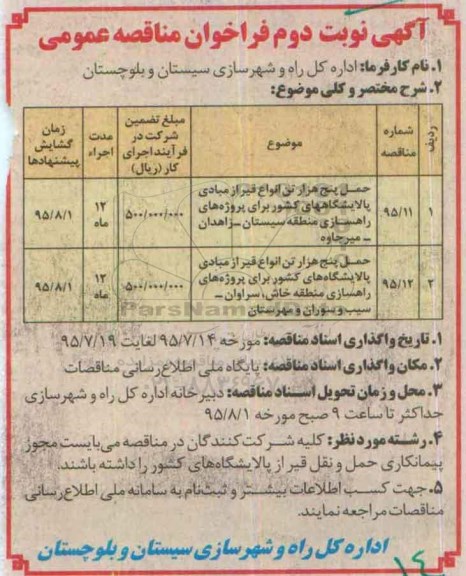 آگهی نوبت دوم فراخوان مناقصه عمومی
۱. نام کارفرما: اداره کل راه و شهرسازی سیستان و بلوچستان
۲. شرح مختصر و کلی موضوع:
ردیف | شماره مناقصه | موضوع | مبلغ تضمین شرکت در فرآیند اجرای کار (ریال) | مدت اجراء | زمان گشایش پیشنهادها
۱ | ۹۵/۱۱ | حمل پنج هزار تن انواع قیر از مبادی پالایشگاههای کشور برای پروژه‌های راهسازی منطقه سیستان ـ زاهدان ـ میرجاوه | ۵۰۰/۰۰۰/۰۰۰ | ۱۲ ماه | ۹۵/۸/۱
۲ | ۹۵/۱۲ | حمل پنج هزار تن انواع قیر از مبادی پالایشگاه‌های کشور برای پروژه‌های راهسازی منطقه خاش، سراوان ـ سیب و سوران و مهرستان | ۵۰۰/۰۰۰/۰۰۰ | ۱۲ ماه | ۹۵/۸/۱
۱. تاریخ واگذاری اسناد مناقصه: مورخه ۹۵/۷/۱۴ لغایت ۹۵/۷/۱۹
۲. مکان واگذاری اسناد مناقصه: پایگاه ملی اطلاع‌رسانی مناقصات
۳. محل و زمان تحویل اسناد مناقصه: دبیرخانه اداره کل راه و شهرسازی
حداکثر تا ساعت ۹ صبح مورخه ۹۵/۸/۱
۴. رشته مورد نظر: کلیه شرکت‌کنندگان در مناقصه می‌بایست مجوز
پیمانکاری حمل و نقل قیر از پالایشگاه‌های کشور را داشته باشند.
۵. جهت کسب اطلاعات بیشتر و ثبت‌نام به سامانه ملی اطلاع‌رسانی
مناقصات مراجعه نمایند.
اداره کل راه و شهرسازی سیستان و بلوچستان
۱۴